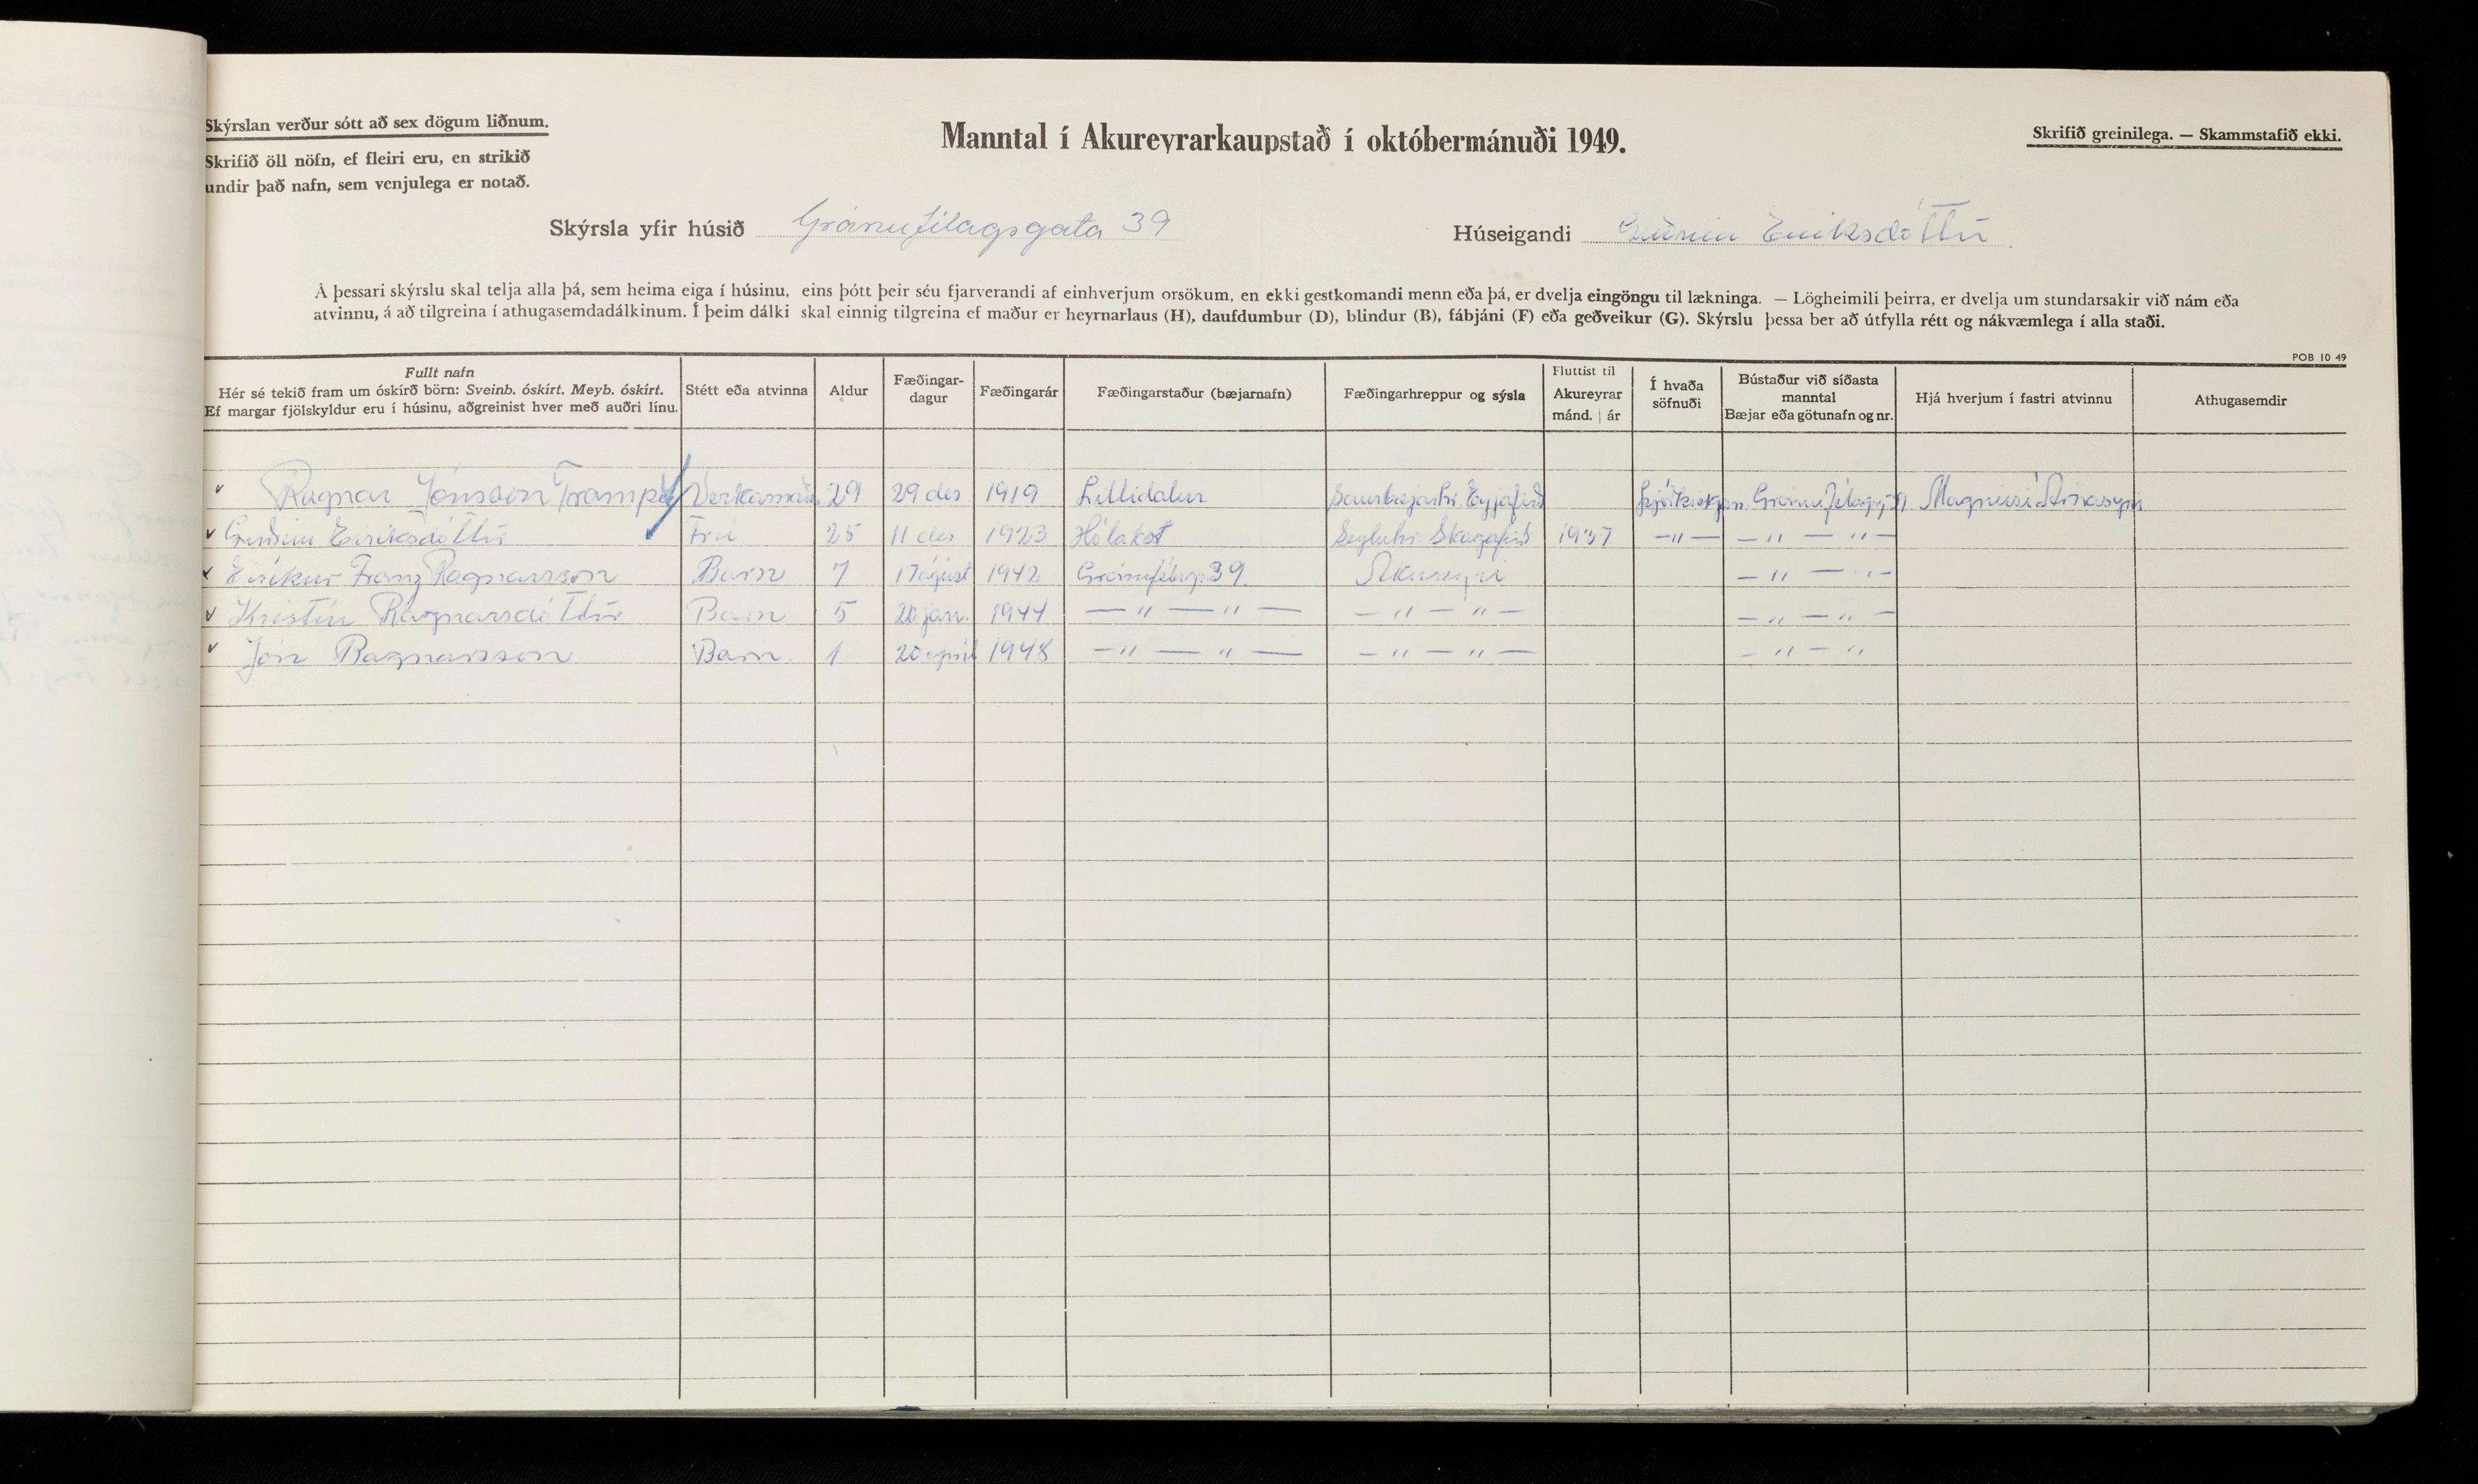 Skýrslan verður sótt að sex dögum liðnum.
Skrifið öll nöfn, ef fleiri eru, en strikið
undir það nafn, sem venjulega er notað.
Manntal í Akureyrarkaupstað í októbermánuði 1949.
Skrifið greinilega. — Skammstafið ekki.
Skýrsla yfir húsið Gránufélagsgata 39
Húseigandi Guðrún Eiríksdóttir
Á þessari skýrslu skal telja alla þá, sem heima eiga í húsinu, eins þótt þeir séu fjarverandi af einhverjum orsökum, en ekki gestkomandi menn eða þá, er dvelja eingöngu til lækninga. — Lögheimili þeirra, er dvelja um stundarsakir við nám eða
atvinnu, á að tilgreina í athugasemdadálkinum. Í þeim dálki skal einnig tilgreina ef maður er heyrnarlaus (H), daufdumbur (D), blindur (B), fábjáni (F) eða geðveikur (G). Skýrslu þessa ber að útfylla rétt og nákvæmlega í alla staði.
POB 10 49
Fullt nafn
Hér sé tekið fram um óskírð börn: Sveinb. óskírt. Meyb. óskírt.
Ef margar fjölskyldur eru í húsinu, aðgreinist hver með auðri línu.
Stétt eða atvinna
Aldur
Fæðingar-
dagur
Fæðingarár
Fæðingarstaður (bæjarnafn)
Fæðingarhreppur og sýsla
Fluttist til
Akureyrar
mánd. | ár
Í hvaða
söfnuði
Bústaður við síðasta
manntal
Bæjar eða götunafn og nr.
Hjá hverjum í fastri atvinnu
Athugasemdir
Ragnar Jónsson Trampe Verkamaður 29 29 des 1919 Litlidalur Saurbæjarhr. Eyjafirð Þjóðkirkjan Magnúsi Árnasyni
Guðrún Eiríksdóttir Frú 25 11 des 1923 Hólakot Seyluhr. Skagafirð 1937 —"— —"—"—
Eiríkur Franz Ragnarsson Barn 7 17 ágúst 1942 Gránufélags 39 Akureyri —"—"—
Kristín Ragnarsdóttir Barn 5 20 jan. 1944 —"—"— —"—"— —"—"—
Jón Ragnarsson Barn 1 20 apríl 1948 —"—"— —"—"— —"—"